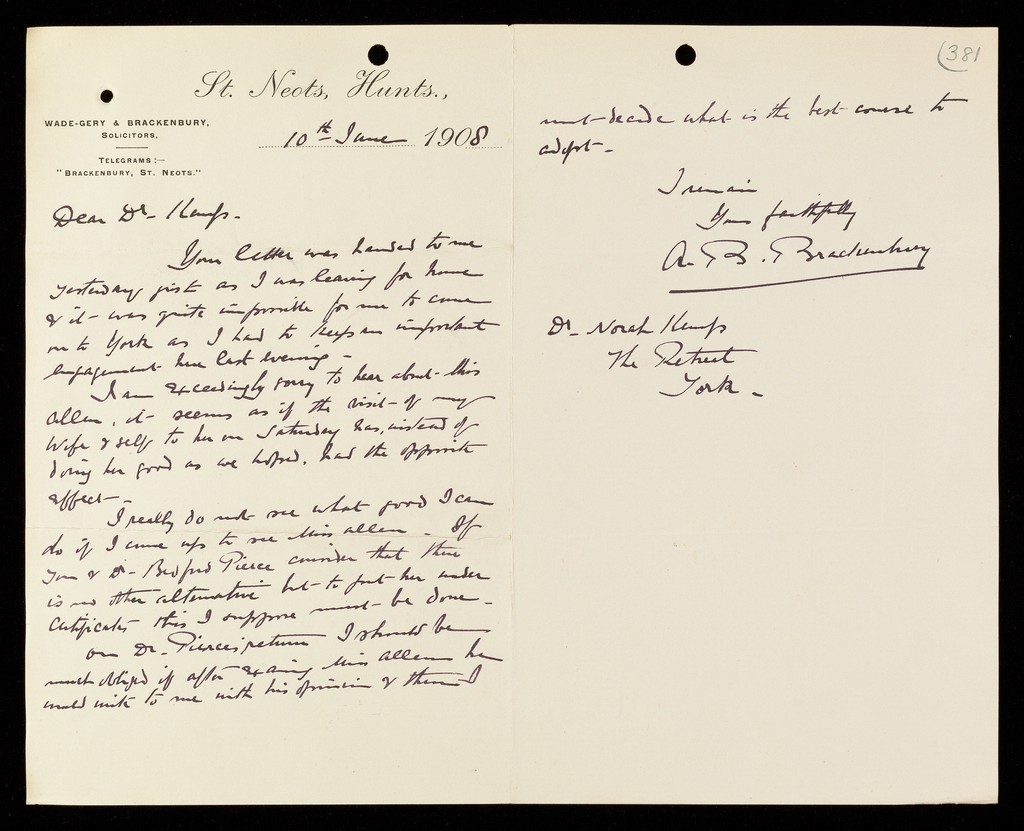 St. Neots, Hunts.,
WADE-GERY & BRACKENBURY,
SOLICITORS,
TELEGRAMS:—
"BRACKENBURY, ST. NEOTS."
10th June 1908
Dear Dr. Kemp.
Your letter was handed to me
yesterday just as I was leaving for home
& it was quite impossible for me to come
on to York as I had to keep an important
engagement here last evening.
I am exceedingly sorry to hear about Miss
Allen, it seems as if the visit of my
Wife & self to her on Saturday has, instead of
doing her good as we hoped, had the opposite
effect.
I really do not see what good I can
do if I come up to see Miss Allen. If
you & Dr. Bedford Pierce consider that there
is no other alternative but to put her under
Certificates this I suppose must be done.
On Dr. Pierce's return I should be
much obliged if after Miss Allen he
would write to me with his opinion & then I
(381
must decide what is the best course to
adopt.
I remain
Yours faithfully
A. B. Brackenbury
Dr. Norah Kemp
The Retreat
York.